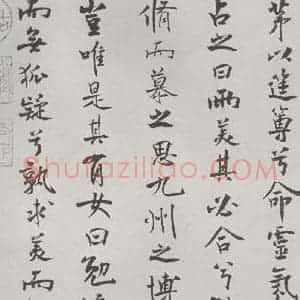 茅以筳篿兮命靈氛
占之曰兩美其必合兮
脩而慕之思九州之博
豈唯是其有女曰勉
而無狐疑兮孰求美而
Shufaziliao.COM